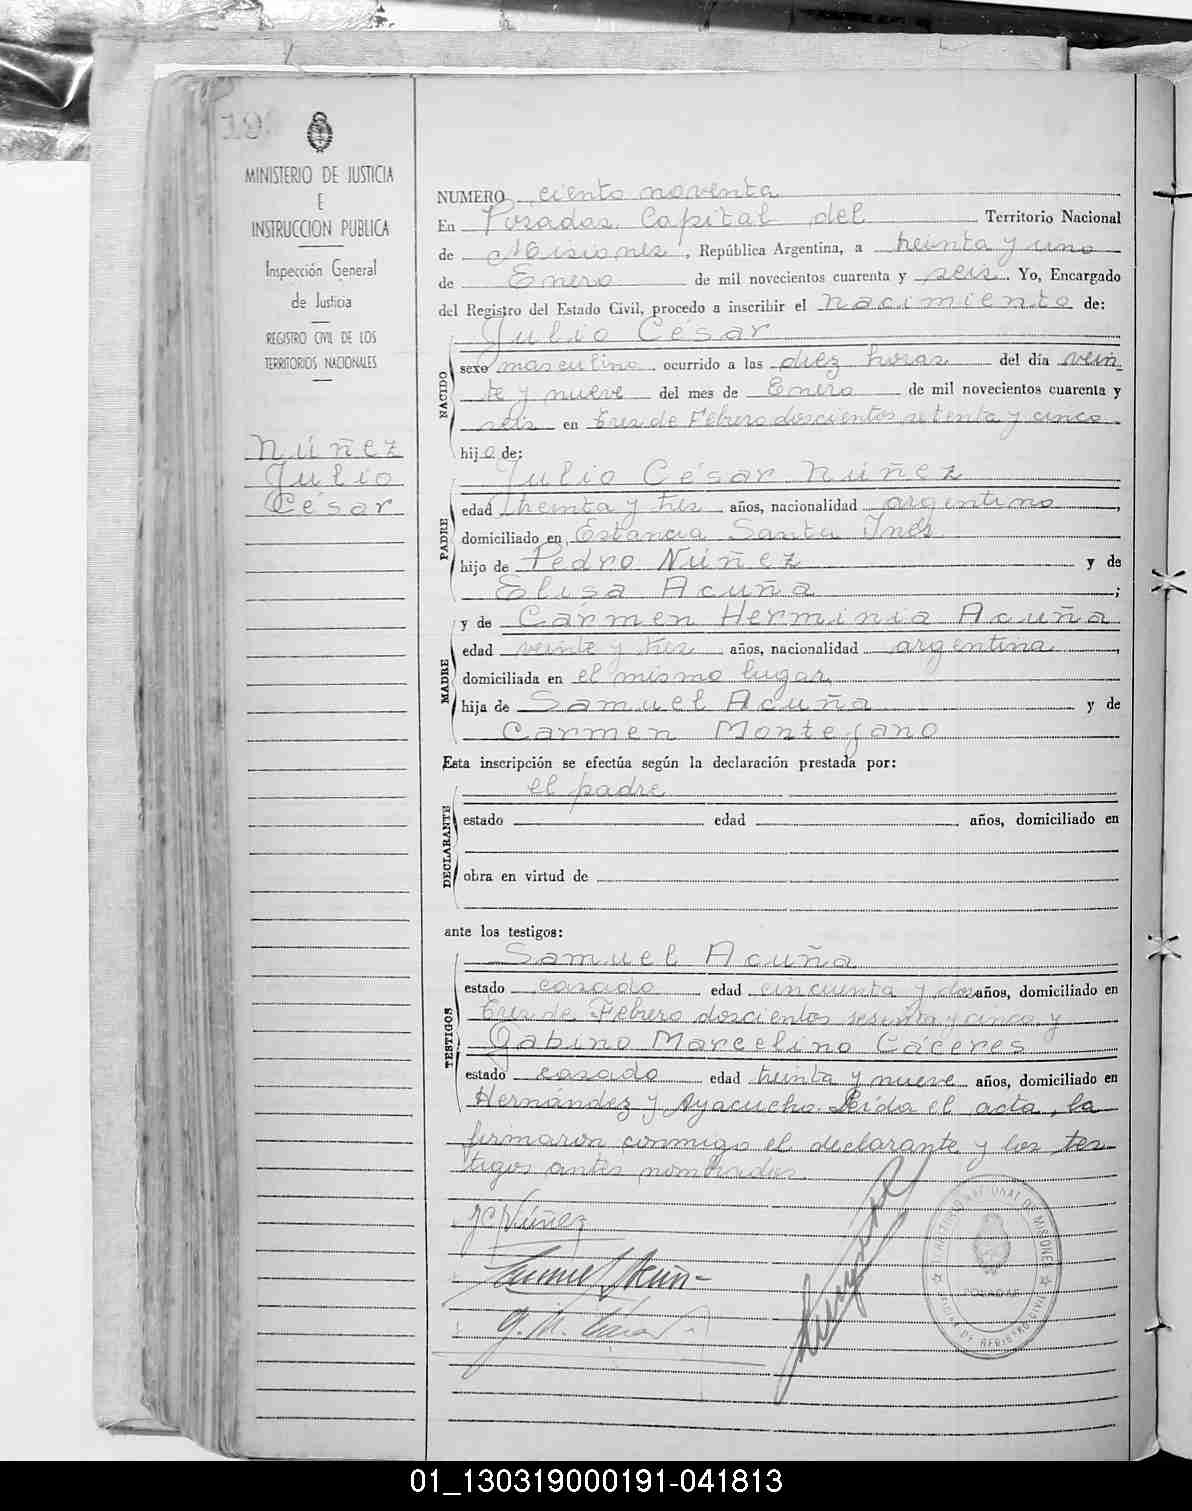 19
MINISTERIO DE JUSTICIA
E
INSTRUCCION PUBLICA
Inspección General
de Justicia
REGISTRO CIVIL DE LOS
TERRITORIOS NACIONALES
Núñez
Julio
César
NUMERO ciento noventa
En Posadas, Capital del Territorio Nacional
de Misiones, República Argentina, a treinta y uno
de Enero de mil novecientos cuarenta y seis. Yo, Encargado
del Registro del Estado Civil, procedo a inscribir el nacimiento de:
NACIDO
Julio César
sexo masculino, ocurrido a las diez horas del día vein
te y nueve del mes de Enero de mil novecientos cuarenta y
seis en tres de Febrero doscientos setenta y cinco
hijo de:
PADRE
Julio César Núñez
edad treinta y tres años, nacionalidad argentino,
domiciliado en Estancia Santa Inés
hijo de Pedro Núñez y de
Elisa Acuña;
MADRE
y de Carmen Herminia Acuña
edad veinte y tres años, nacionalidad argentina,
domiciliada en el mismo lugar
hija de Samuel Acuña y de
Carmen Montejano
Esta inscripción se efectúa según la declaración prestada por:
DECLARANTE
el padre
estado edad años, domiciliado en
obra en virtud de
ante los testigos:
TESTIGOS
Samuel Acuña
estado casado edad cincuenta y dos años, domiciliado en
tres de Febrero doscientos sesenta y cinco y
Gabino Marcelino Cáceres
estado casado edad treinta y nueve años, domiciliado en
Hernández y Ayacucho. Leída el acta, la
firmaron conmigo el declarante y los tes
tigos antes nombrados.
JC Núñez
Samuel Acuña
G. M. Cáceres
TERRITORIO NACIONAL DE MISIONES
POSADAS
01_130319000191-041813